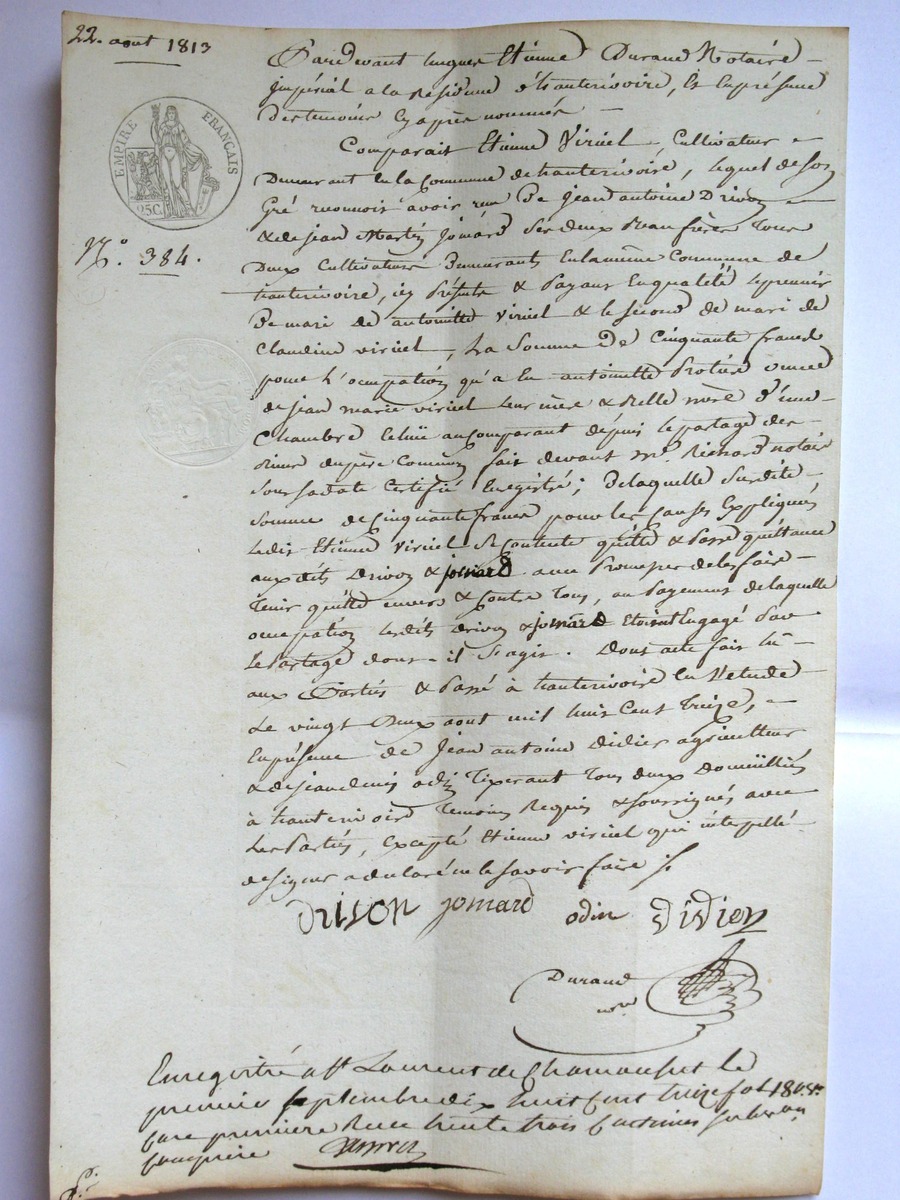 22. aout 1813
EMPIRE FRANÇAIS
25C.
N.º 384.
Pardevant hugues Etienne Durand Notaire
impérial a la Résidence d'hauterivoire, Et En présence
des temoins Cy après nommés
Comparait Etienne Viriel, Cultivateur
Demeurant En la Commune de hauterivoire, lequel de Son
Gré reconnois avoir reçu De jean antoine Drivon
& de jean Marte jomard Ses deux Beau frères tous
Deux Cultivateurs Demeurants En la même Commune de
hauterivoire, icy Présents & Payans En qualité le premier
De mari de antoinette Viriel & le Second de mari de
Claudine viriel, La Somme De Cinquante francs
pour L'ocupation qu'a Eu antoinette Protière veuve
de jean marie viriel Leur mère & Belle mère d'une
Chambre Echüe au Comparant depuis le partage des
Biens du père Commun fait devant mᵉ. Richard notaire
Sous Sa date Certifié Enregistré; De laquelle Surdite
Somme de Cinquante francs pour les Causes Expliqués
Ledit Etienne Viriel Se Contente quitte & Passe quittance
aux dits Drivon & jomard avec Promesse de les faire
Tenir quitte envers & Contre Tous, au Payement de laquelle
ocupation lesdits Drivon & jomard Etoint Engagé Par
Le Partage dont il S'agit. Dont acte fait lü
aux Parties & Passé à hauterivoire En l'etude
Le vingt Deux aout mil huit Cent Treize,
En présence de Jean antoine Didier agriculteur
& de jean denis odin Tixerant Tous deux Domiciliés
à hauterivoire Temoins Requis & Soussignés avec
Les Parties, Excepté Etienne viriel qui interpellé
de Signer a declaré ne le Savoir faire
Drivon jomard odin Didier
Durand
nʳᵉ
Enregistré a Sᵗ Laurent de Chamousset le
premier Septembre dix huit Cent treize fol 180
Case première Recu trente trois Centimes
Comprise